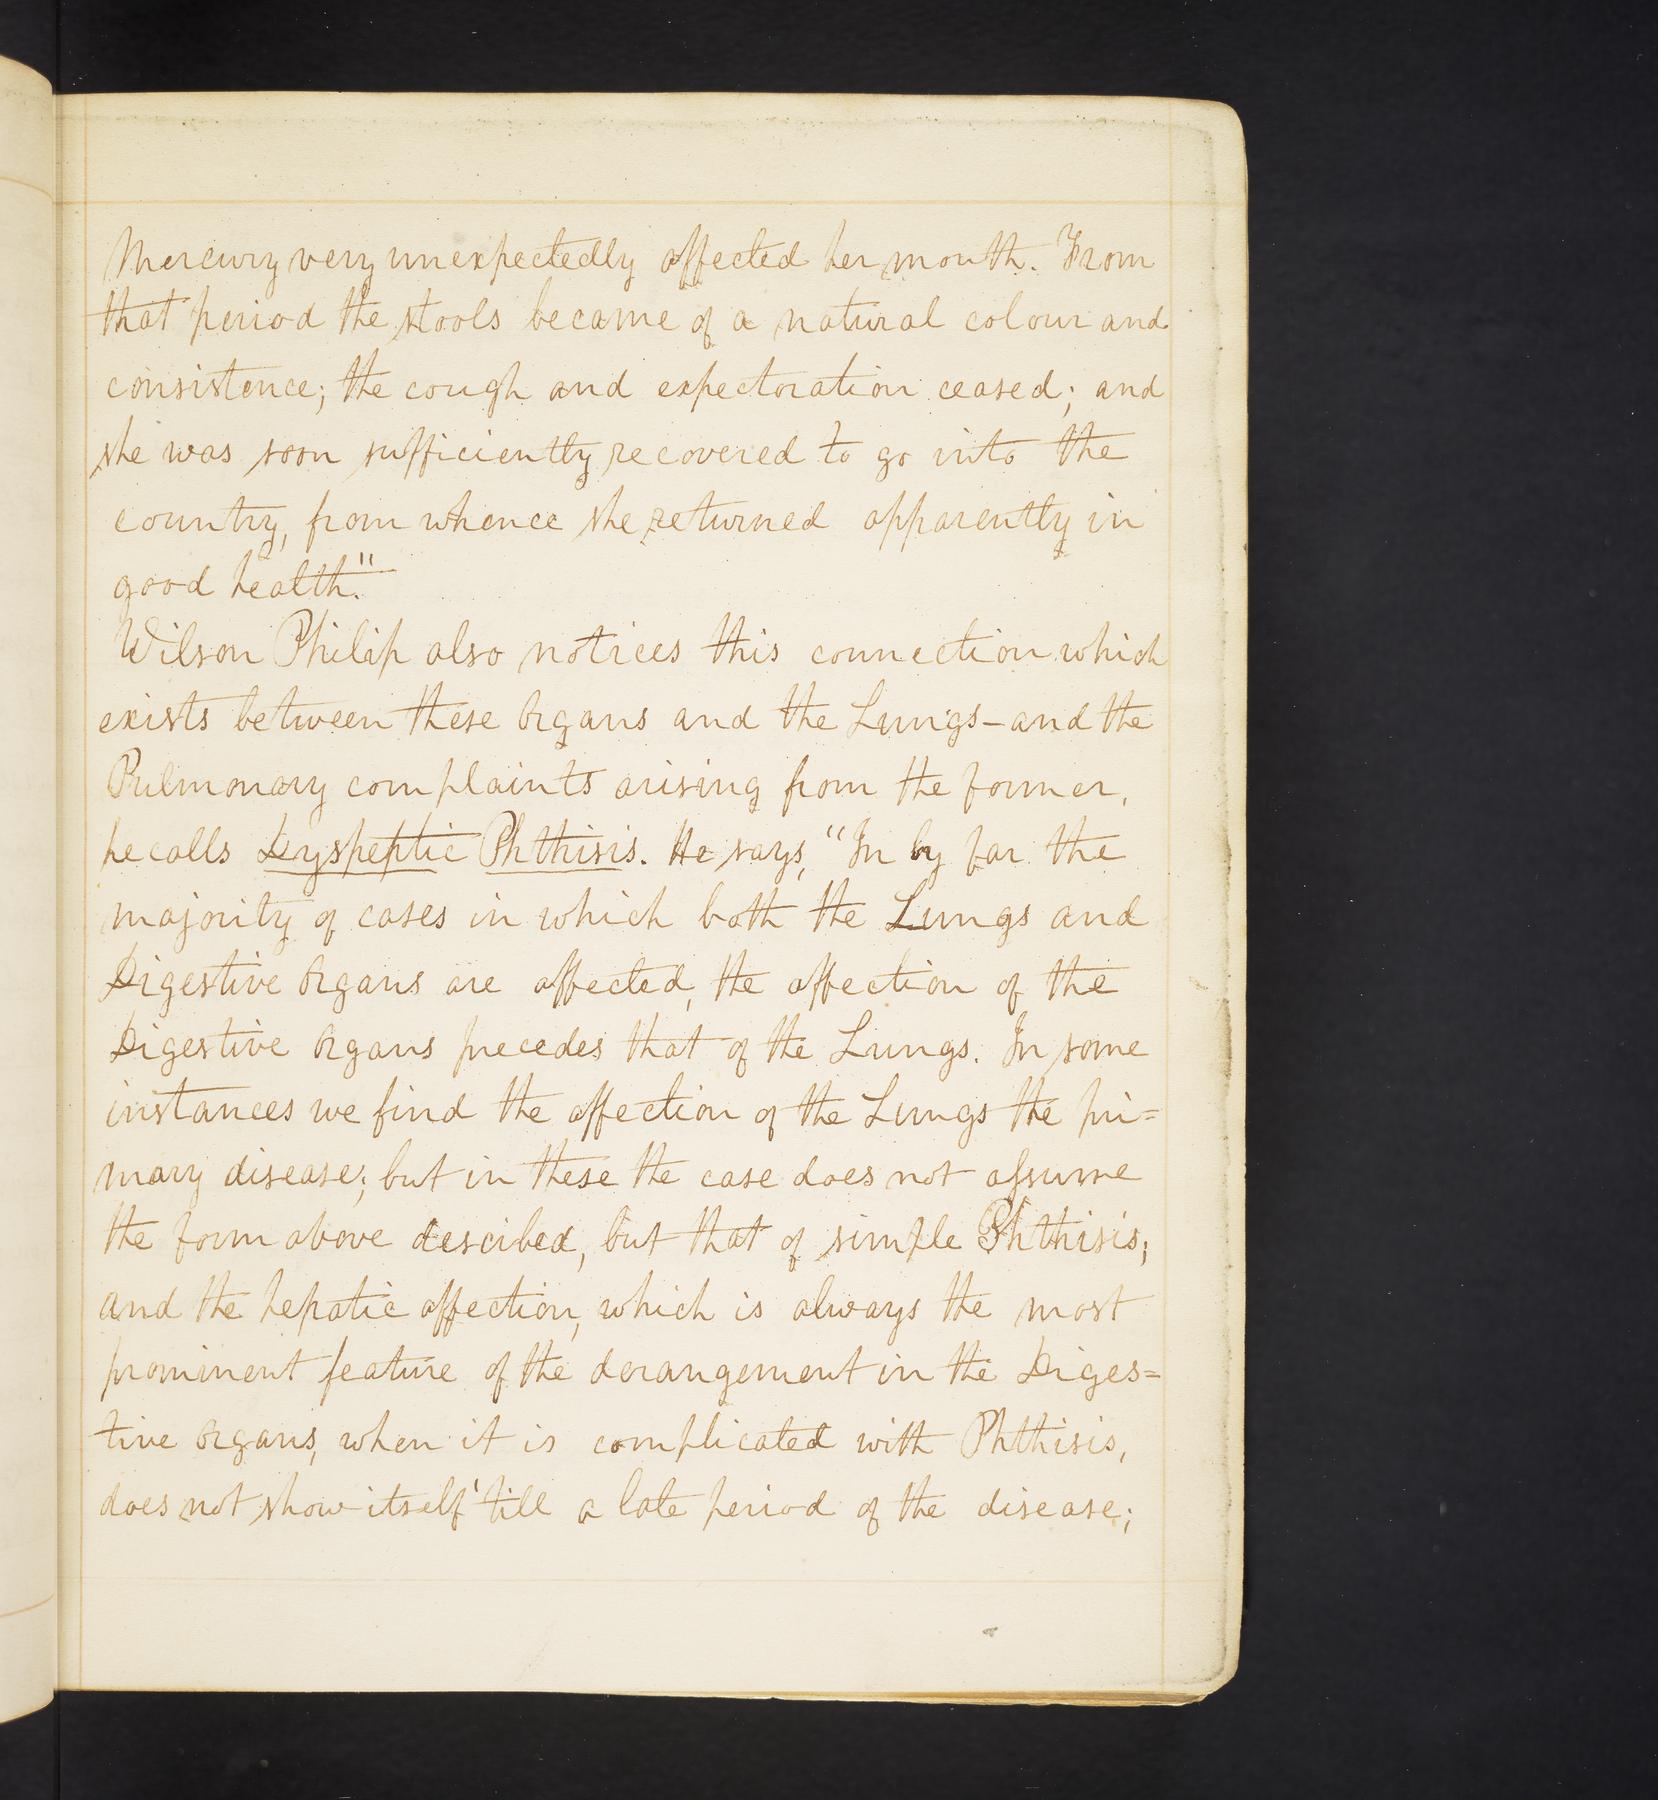 Mercury very unexpectedly affected her mouth. From
that period the stools became of a natural colour and
consistence; the cough and expectoration ceased; and
she was soon sufficiently recovered to go into the
country, from whence she returned apparently in
good health."
Wilson Philip also notices this connection which
exists between these Organs and the Lungs – and the
Pulmonary complaints arising from the former,
he calls Dyspeptic Phthisis. He says, "In by far the
majority of cases in which both the Lungs and
Digestive Organs are affected, the affection of the
Digestive Organs precedes that of the Lungs. In some
instances we find the affection of the Lungs the pri=
mary disease; but in these the case does not assume
the form above descibed, but that of simple Phthisis;
and the hepatic affection, which is always the most
prominent feature of the derangement in the Diges=
tive Organs, when it is complicated with Phthisis,
does not show itself 'till a late period of the disease;